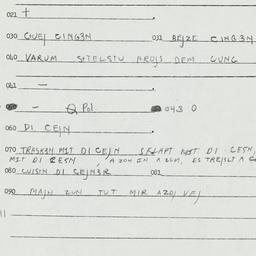 021 †
030 CWEJ CING3N 031 BEJZE CING3N
040 VARUM STELSTU AROJS DEM CUNG
041 —
— Q Pol. 043 0
060 DI CEJN
070 TRASK3N MIT DI CEJN SKLAPT MIT DI CEJN,
MIT DI CEJN , AZOJ IN AZOJ, ES TREJSLT A
080 CWISN DI CEJN3R 081
090 MAJN ZUN TUT MIR AZOJ VEJ